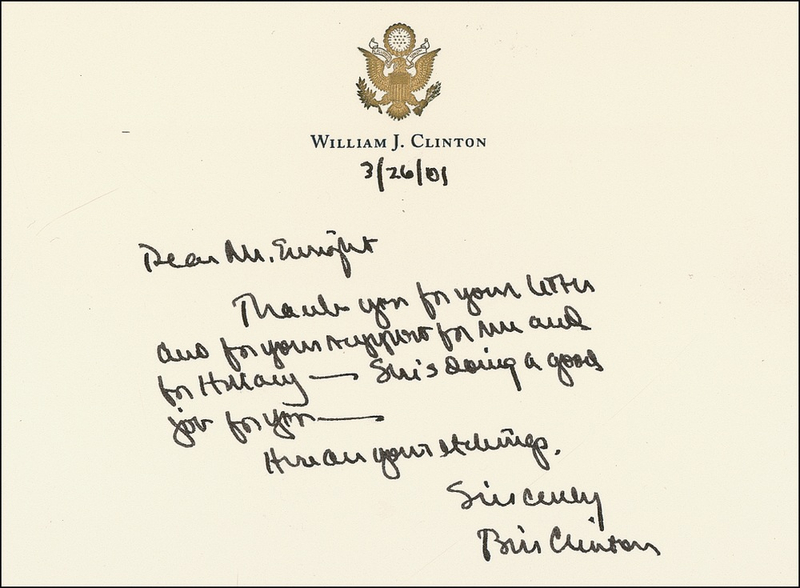 WILLIAM J. CLINTON
3/26/01
Dear Mr. Enright
Thank you for your letter
and for your support for me and
for Hillary — She's doing a good
job for you —
Here are your etchings.
Sincerely
Bill Clinton